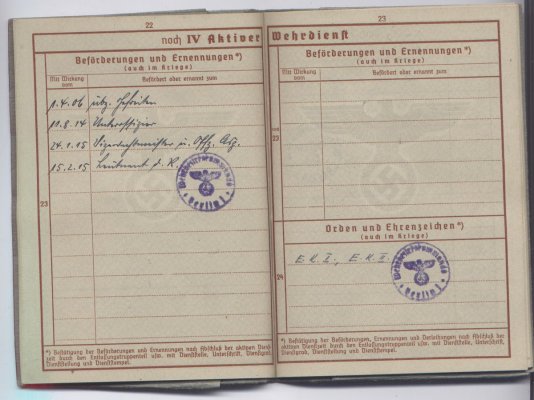 22
noch IV Aktiver
Beförderungen und Ernennungen*)
(auch im Kriege)
Mit Wirkung vom
Befördert oder ernannt zum
1.4.06 Gefreiten
10.8.14 Unteroffizier
24.1.15 Vizewachtmeister u. Offz. Asp.
15.2.15 Leutnant d. R.
Wehrbezirkskommando
Berlin I
23
*) Bestätigung der Beförderungen und Ernennungen nach Abschluß der aktiven Dienst-
zeit durch den Entlassungstruppenteil usw. mit Dienststelle, Unterschrift, Dienstgrad,
Dienststellung und Dienststempel.
23
Wehrdienst
Beförderungen und Ernennungen*)
(auch im Kriege)
Mit Wirkung vom
Befördert oder ernannt zum
noch
23
Orden und Ehrenzeichen*)
(auch im Kriege)
E.K. I., E.K. II.
Wehrbezirkskommando
Berlin I
24
*) Bestätigung der Beförderungen, Ernennungen und Verleihungen nach Abschluß der
aktiven Dienstzeit durch den Entlassungstruppenteil usw. mit Dienststelle, Unterschrift,
Dienstgrad, Dienststellung und Dienststempel.